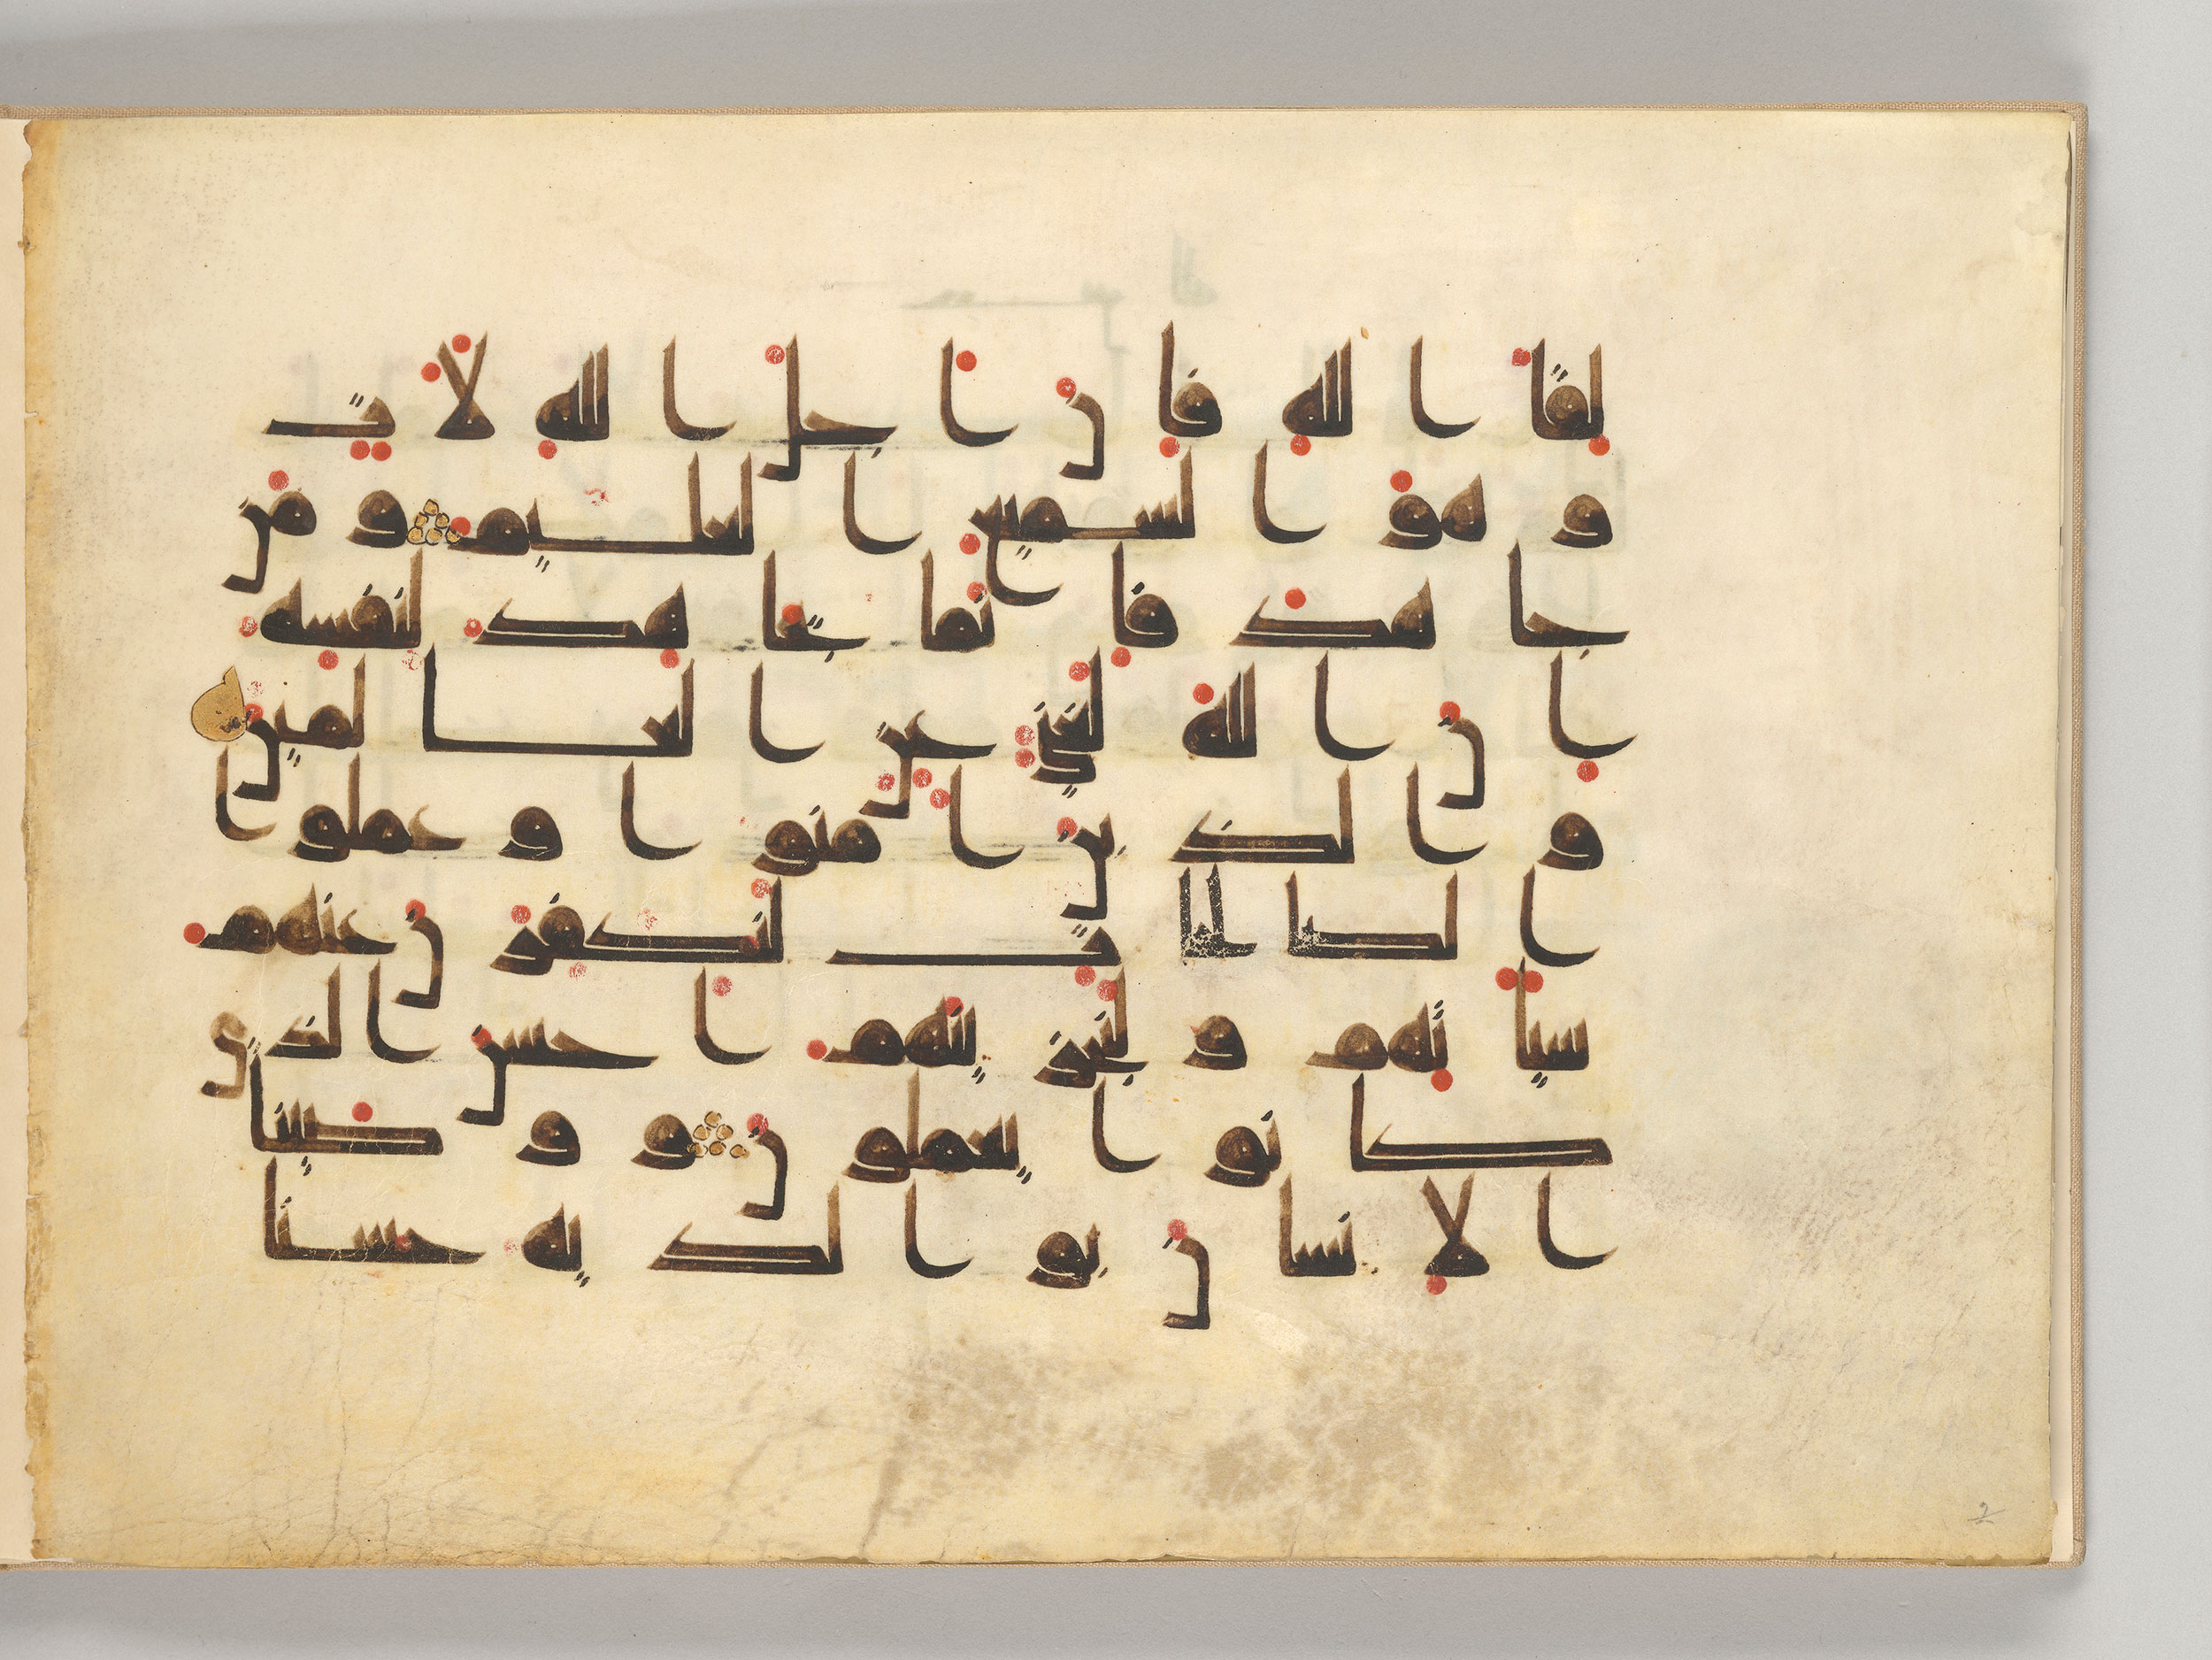 لقا ا لله فا ن ا جل ا لله لا ت
و هو ا لسميع ا لعليم و من
جا هد فا نما يجا هد لنفسه
ا ن ا لله لغني عن ا لعا لمين
و ا لذ ين ا منو ا و عملو ا
ا لصا لحا ت لنكفر ن عنهم
سيا تهم و لنجز ينهم ا حسن ا لذ ي
كا نو ا يعملو ن و و صينا
ا لا نسا ن بو ا لد يه حسنا
2